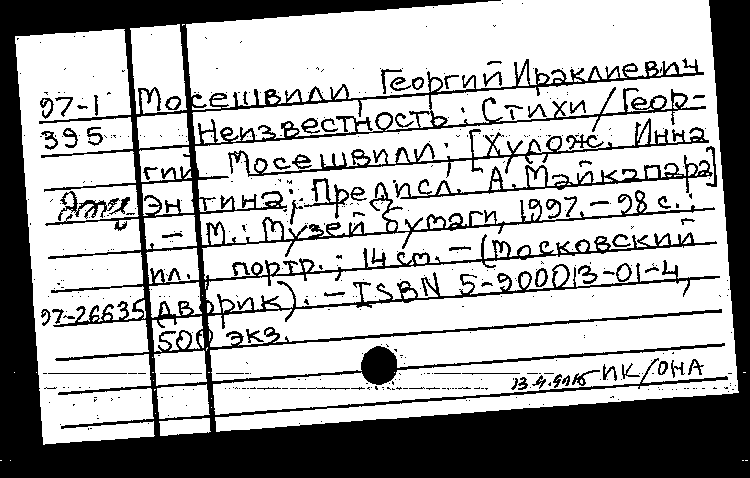 97-1 Мосешвили, Георгий Ираклиевич
395 Неизвестность: Стихи / Геор-
гий Мосешвили; [Худож. Инна
Энгина; Предисл. А. Майкапара]
. - М.: Музей бумаги, 1997. - 98 с.:
ил., портр.; 14 см. - (Московский
97-26635 дворик). - ISBN 5-900013-01-4,
500 экз.
ИК/ОНА